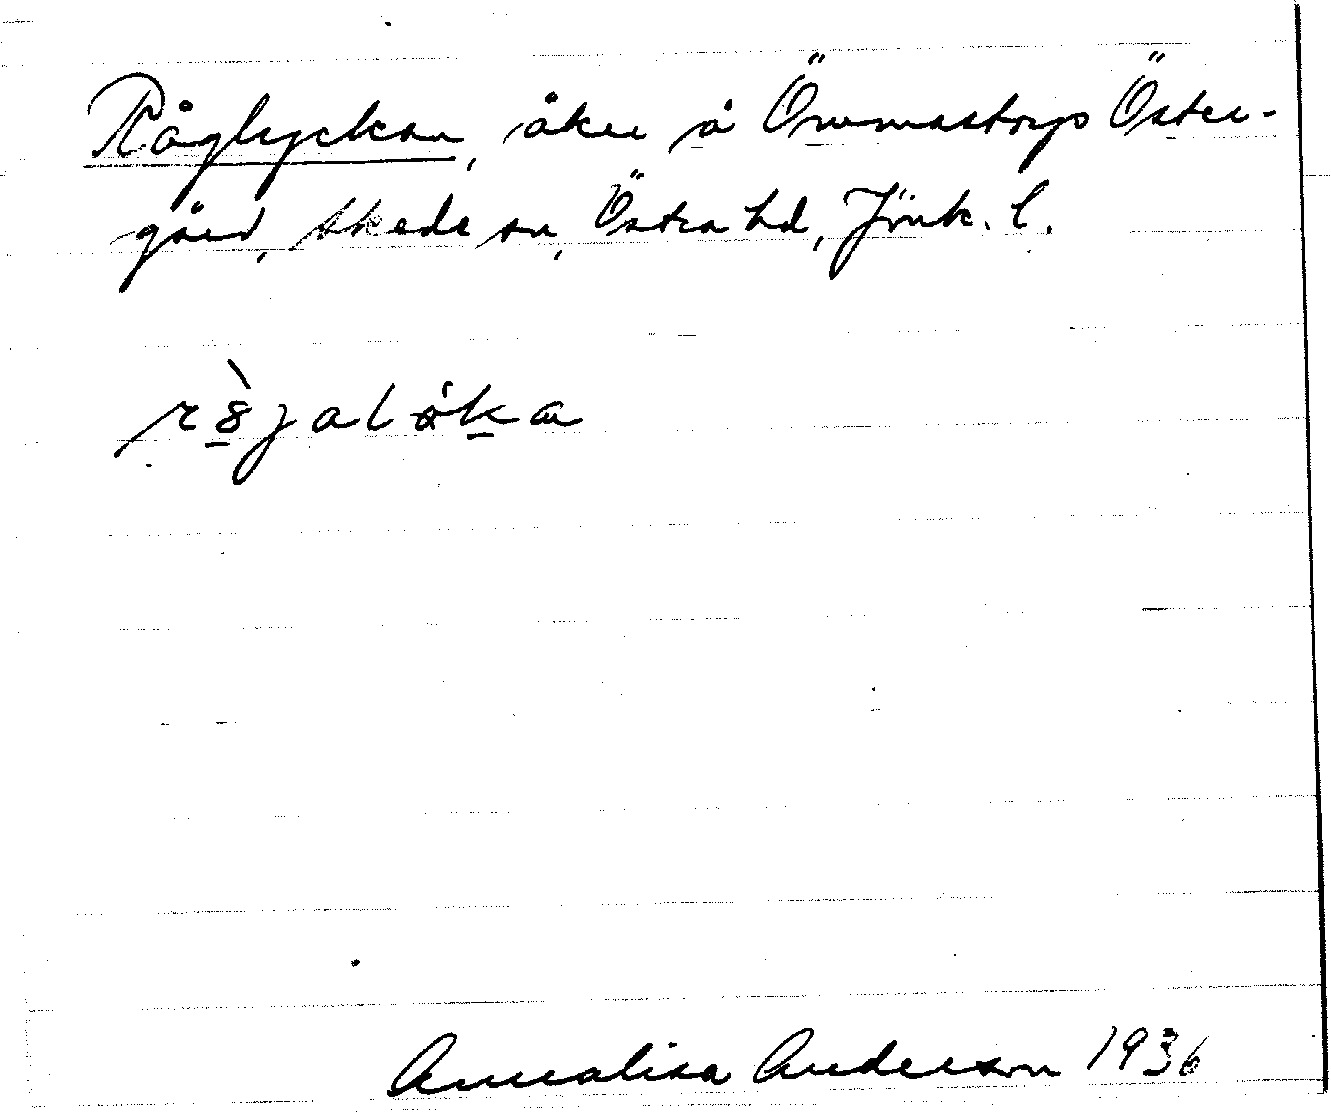 Råglyckan, åker å Ömmastorps Öster-
gård, Skede sn, Östra hd, Jönk. l.
Annalisa Anderson 1936